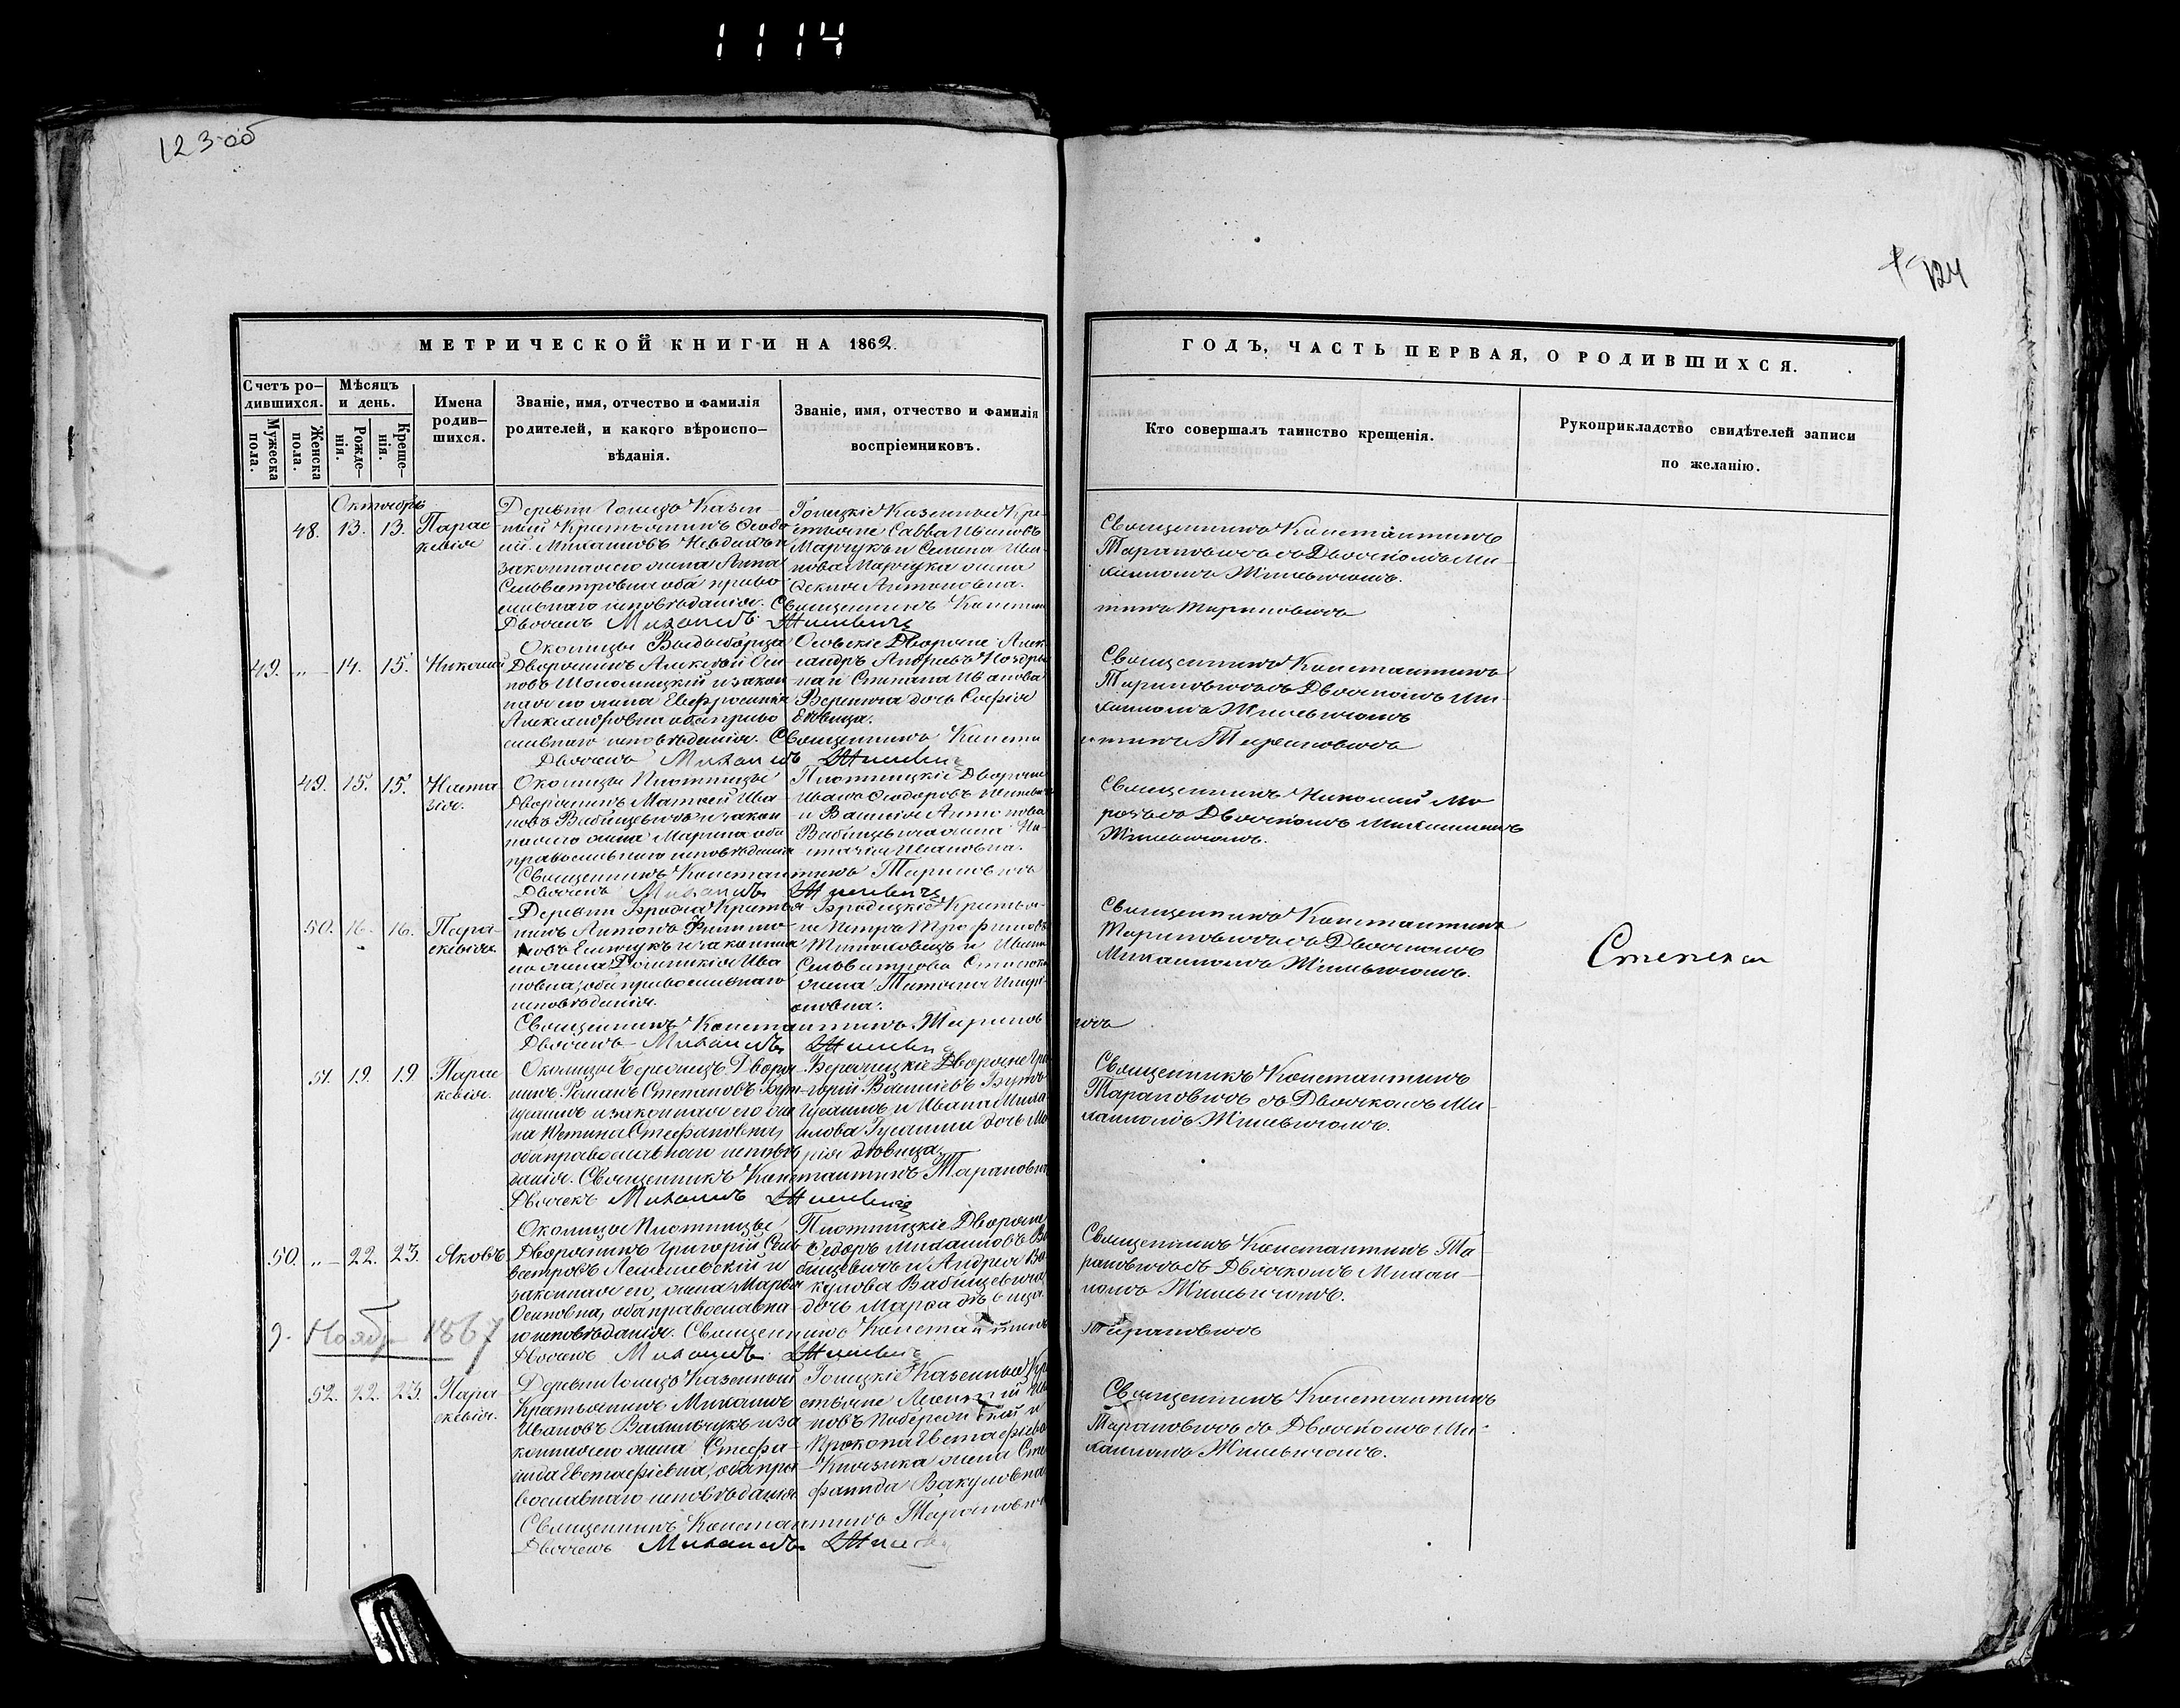 1114
123 об
124
МЕТРИЧЕСКОЙ КНИГИ НА 1862
ГОДЪ, ЧАСТЬ ПЕРВАЯ, О РОДИВШИХСЯ.
Счетъ ро-
дившихся.
Мужеска
пола.
Женска
пола.
Мѣсяцъ
и день.
Рожде-
нія.
Креще-
нія.
Имена
родив-
шихся.
Званіе, имя, отчество и фамилія
родителей, и какого вѣроиспо-
вѣданія.
Званіе, имя, отчество и фамилія
воспріемниковъ.
Кто совершалъ таинство крещенія.
Рукоприкладство свидѣтелей записи
по желанію.
Октябрь
48. 13. 13. Парас
кевія
Деревни Казен-
ный Крестьянинъ
законная его жена Анна
Сельвестровна оба право
славнаго исповѣданія. Священникъ Констан
тинъ Тарановичъ
Дьячекъ Михаилъ Жилевичъ
Казенные Кре-
стьяне Савва Ивановъ
Марчукъ и Семена Ива-
нова Марчука жена
Антоновна.
Священникъ Константинъ
Тарановичъ съ Дьячкомъ Ми-
хаиломъ Жилевичомъ.
49. „ 14. 15. Николай
Околицы
Дворянинъ Алексѣй Оси
повъ и закон
ная его жена Евфросинія
Александровна оба право
славнаго исповѣданія. Священникъ Конста
нтинъ Тарановичъ
Дьячекъ Михаилъ Жилевичъ
Дворяне Алек
сандръ Андреевъ
и Степана Иванова
дочь Софія
дѣвица.
Священникъ Константинъ
Тарановичъ съ Дьячкомъ Ми-
хаиломъ Жилевичомъ
49. 15. 15. Наста
зія.
Околицы Плотницы
Дворянинъ Матвей Ива
новъ Вабищевичъ и закон
ная его жена Марина оба
православнаго исповѣданія
Священникъ Константинъ Тарановичъ
Дьячекъ Михаилъ Жилевичъ
Плотницкіе Дворяне
Иванъ Ѳеодоровъ
и Василія Антонова
Вабищевича жена
Ивановна.
Священникъ Николай Мо
розъ съ Дьячкомъ Михаиломъ
Жилевичомъ.
50. 16. 16. Пара-
скевія.
Деревни Бродча Крестья
нинъ Антонъ
и законна
я жена Домникія Ива
новна, оба православнаго
исповѣданія.
Священникъ Константинъ Тарановичъ
Дьячекъ Михаилъ Жилевичъ
Бродецкіе Крестья-
не Петръ Трофимовъ
и
Сельвестрова
жена Татіана
оновна.
Священникъ Константинъ
Тарановичъ съ Дьячкомъ
Михаиломъ Жилевичомъ.
51. 19. 19. Парас
кевія.
Околицы Дворя
нинъ Романъ Степановъ
и законная его же
на Юстина Стефановна,
оба православнаго исповѣ
данія. Священникъ Константинъ Тарановичъ
Дьячекъ Михаилъ Жилевичъ
Дворяне Гри
горій Василіевъ
и Ивана Миха
илова дочь Ма
рія дѣвица.
Священникъ Константинъ
Тарановичъ съ Дьячкомъ Ми-
хаиломъ Жилевичомъ.
50. „ 22. 23. Яковъ
Околицы Плотницы
Дворянинъ Григорій Сель
вестровъ Лемешевскій и
законная его, жена Марья
Осиповна, оба православна-
го исповѣданія. Священникъ Константинъ
Тарановичъ
Дьячекъ Михаилъ Жилевичъ
Плотницкіе Дворяне
Ѳедоръ Михаиловъ Ва
бищевичъ и Андрея Ва
кулова Вабищевича
дочь Марѳа дѣвица.
Священникъ Константинъ Та
рановичъ съ Дьячкомъ Михаи-
ломъ Жилевичомъ.
9. Ноябр 1867
52. 22. 23. Пара
скевія.
Деревни Казенный
Крестьянинъ Михаилъ
Ивановъ Васильчукъ и за
конная его жена Стефа-
нида Евстафіевна, оба пра
вославнаго исповѣданія
Священникъ Константинъ Тарановичъ
Дьячекъ Михаилъ Жилевичъ
Казенные Кре
стьяне
новъ и
Прокопа Евстафіева
жена Сте
фанида Вакуловна
Священникъ Константинъ
Тарановичъ съ Дьячкомъ Ми-
хаиломъ Жилевичомъ.